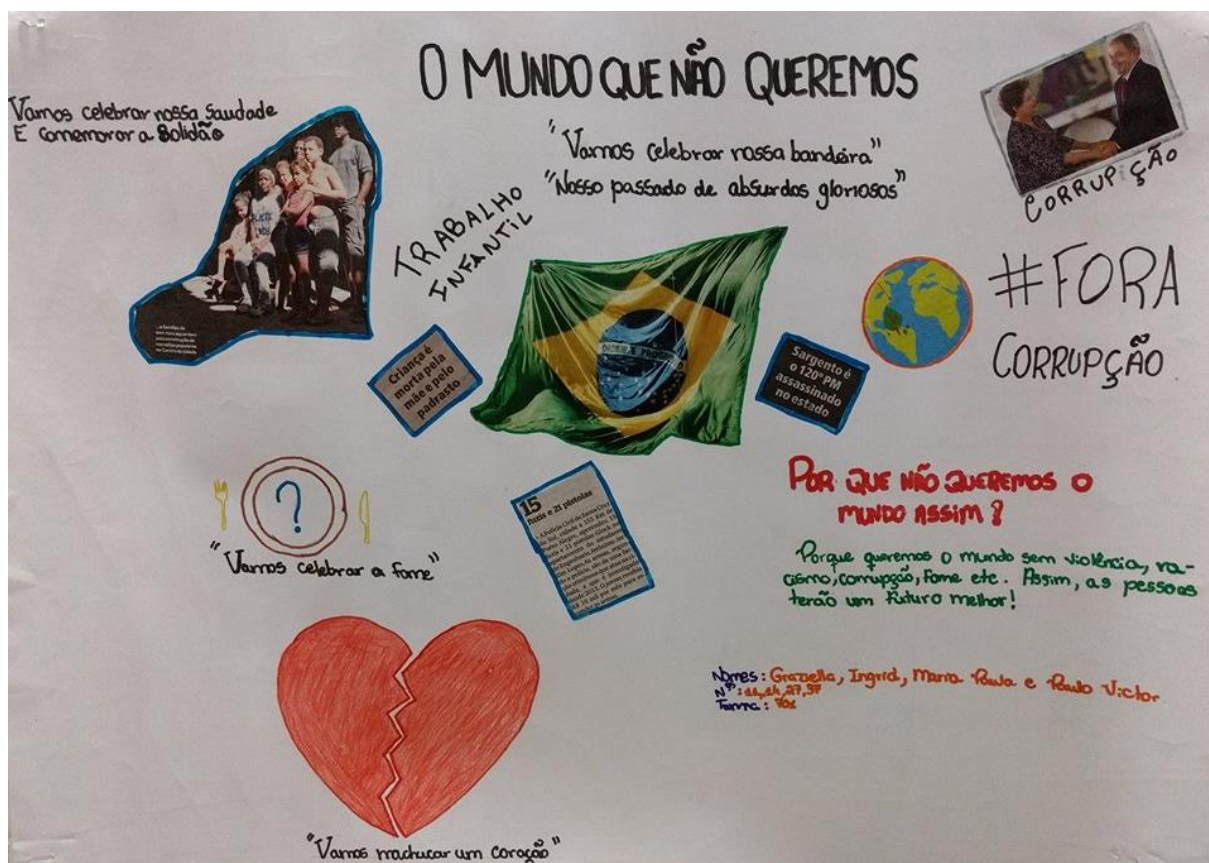 O MUNDO QUE NÃO QUEREMOS
Vamos celebrar nossa saudade
E comemorar a solidão
"Vamos celebrar nossa bandeira"
"Nosso passado de absurdos gloriosos"
CORRUPÇÃO
TRABALHO
INFANTIL
#FORA
CORRUPÇÃO
Criança é
morta pela
mãe e pelo
padrasto
Sargento é
o 120º PM
assassinado
no estado
?
"Vamos celebrar a fome"
15
fuzis e 21 pistolas
POR QUE NÃO QUEREMOS O
MUNDO ASSIM?
Porque queremos o mundo sem violência, ra-
cismo, corrupção, fome etc. Assim, as pessoas
terão um futuro melhor!
Nomes: Graziella, Ingrid, Maria Paula e Paulo Victor
Nºs: 27, 37
Turma: 701
"Vamos machucar um coração"